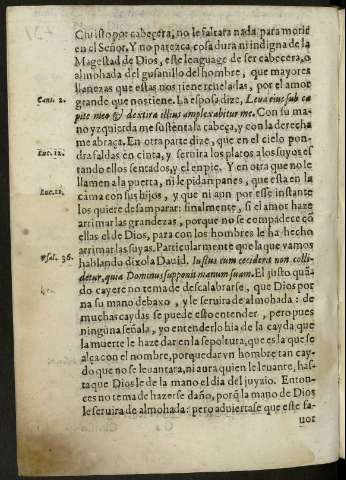 Christo por cabeçera, no le faltara nada para morir
en el Señor. Y no parezca cosa dura ni indigna de la
Magestad de Dios, este lenguage de ser cabeçera, o
almohada del gusanillo del hombre, que mayores
llanezas que estas nos tiene reueladas, por el amor
grande que nos tiene. La esposa dize, Leua eius sub ca
Cant. 2.
pite meo & dextera illius amplexabitur me. Con su ma
no yzquierda me sustenta la cabeça, y con la derecha
me abraça. En otra parte dize, que en el cielo pon-
Luc. 12.
dra faldas en cinta, y seruira los platos a los suyos es
tando ellos sentados, y el en pie. Y en otra que no le
llamen a la puerta, ni le pidan panes, que esta en la
Luc. 11.
cama con sus hijos, y que ni aun por esse instante
los quiere desamparar: finalmente, si el amor haze
arrimar las grandezas, porque no se compadece cõ
ellas el de Dios, para con los hombres le ha hecho
arrimar las suyas. Particularmente la que vamos
hablando dixola Dauid. Iustus cum ceciderit non colli
Psal. 36.
detur, quia Dominus supponit manum suam. El justo quã
do cayere no tema de descalabrarse, que Dios por
na su mano debaxo, y le seruira de almohada: de
muchas caydas se puede esto entender, pero pues
ninguna señala, yo entenderlo hia de la cayda que
la muerte le haze dar en la sepoltura, que es la que se
alça con el nombre, por quedar vn hombre tan cay-
do que no se leuantara, ni aura quien le leuante, has-
ta que Dios le de la mano el dia del juyzio. Enton-
ces no tema de hazerse daño, porq̃ la mano de Dios
le seruira de almohada: pero aduiertase que este fa-
uor